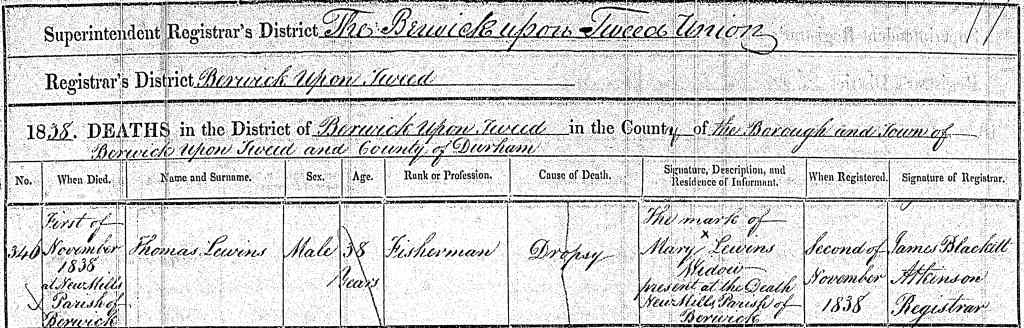 Superintendent Registrar's District The Berwick upon Tweed Union
Registrar's District Berwick Upon Tweed
1838. DEATHS in the District of Berwick Upon Tweed in the County of the Borough and Town of
Berwick upon Tweed and County of Durham
No. When Died. Name and Surname. Sex. Age. Rank or Profession. Cause of Death. Signature, Description, and Residence of Informant. When Registered. Signature of Registrar.
346
First of
November
1838
at New Mills
Parish of
Berwick
Thomas Lewins
Male
38
Years
Fisherman
Dropsy
The mark of
x
Mary Lewins
Widow
present at the Death
New Mills Parish of
Berwick
Second of
November
1838
James Blackett
Atkinson
Registrar